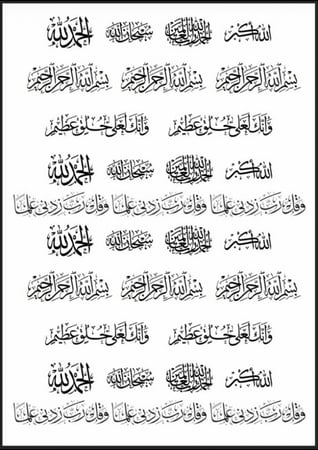 الله أكبر الحمد لله رب العالمين سبحان الله الحمد لله
بسم الله الرحمن الرحيم بسم الله الرحمن الرحيم بسم الله الرحمن الرحيم
وإنك لعلى خلق عظيم وإنك لعلى خلق عظيم
الله أكبر الحمد لله رب العالمين سبحان الله الحمد لله
وقل رب زدني علما وقل رب زدني علما وقل رب زدني علما
الله أكبر الحمد لله رب العالمين سبحان الله الحمد لله
بسم الله الرحمن الرحيم بسم الله الرحمن الرحيم بسم الله الرحمن الرحيم
وإنك لعلى خلق عظيم وإنك لعلى خلق عظيم
الله أكبر الحمد لله رب العالمين سبحان الله الحمد لله
وقل رب زدني علما وقل رب زدني علما وقل رب زدني علما